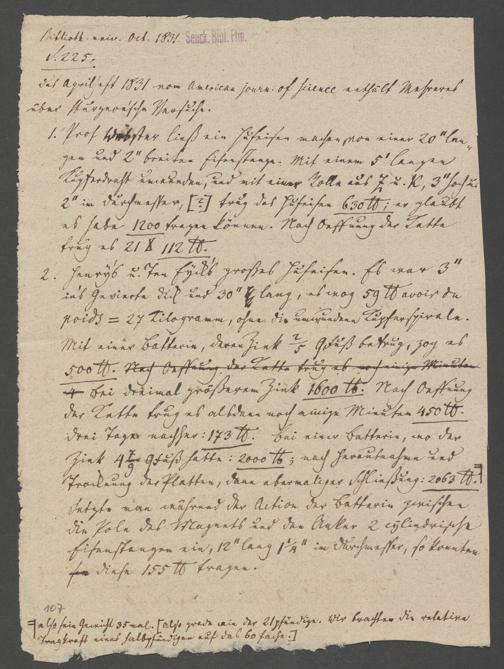 Biblioth. univ. Oct. 1831. Senck. Bibl. Ffm.
S. 225.
das Aprilheft 1831 vom American journ. of science enthält Mehreres
über Sturgeon'sche Versuche.
1. Prof Webster ließ ein Hufeisen machen, von einer 20" lan-
gen und 2" breiten Eisenstange. Mit einem 5' langen
Kupferdraht umwunden, und mit einer Rolle aus Z. u. K, 3" hoch u.
2" im Durchmesser, trug das Hufeisen 630 ℔; er glaubt
es habe 1200 tragen können. Nach Oeffnung der Kette
trug es 112 ℔.
2. Henry's u. Ten Eyck's großes Hufeisen. Es war 3"
ins Gevierte dick und 30" lang, es wog 59 ℔ avoir du
poids = 27 Kilogramm, ohne die umwundene Kupferspirale.
Mit einer Batterie, deren Zink Qfuß betrug, zog es
500 ℔. Nach Oeffnung der Kette trug es noch einige Minuten
4 bei dreimal größerem Zink 1600 ℔. Nach Oeffnung
der Kette trug es alsdann noch einige Minuten 450 ℔.
drei Tage nachher: 173 ℔. Bei einer Batterie, wo der
Zink Qfuß hatte: 2000 ℔; nach Herausnahme und
Trocknung der Platten, dann abermaliger Schließung: 2063 ℔.
Setzte man während der Action der Batterie zwischen
die Pole des Magnets und den Anker 2 cylindrische
Eisenstangen ein, 12" lang 1¼" im Durchmesser, so konnten
diese 155 ℔ tragen.
107
also sein Gewicht 35 mal. [also grade wie der 21pfündige. Wir brachten die relative
Tragkraft eines halbpfündigen auf das 60 fache.]